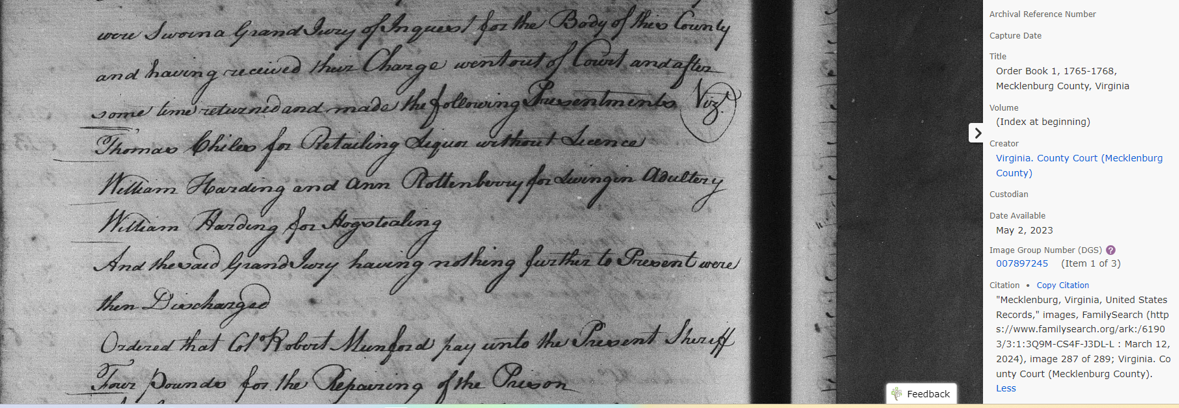 were Sworn a Grand Jury of Inquest for the Body of this County
and having received their Charge went out of Court and after
some time returned and made the following Presentments Vizt.
Thomas Chiles for Retailing Liquor without Licence
William Harding and Ann Rottenberry for Living in Adultery
William Harding for Hogstealing
And the said Grand Jury having nothing further to Present were
then Discharged
Ordered that Colo. Robert Munford pay unto the Present Sheriff
Four pounds for the Repairing of the Prison
Archival Reference Number
Capture Date
Title
Order Book 1, 1765-1768,
Mecklenburg County, Virginia
Volume
(Index at beginning)
Creator
Virginia. County Court (Mecklenburg
County)
Custodian
Date Available
May 2, 2023
Image Group Number (DGS) ?
007897245 (Item 1 of 3)
Citation • Copy Citation
"Mecklenburg, Virginia, United States
Records," images, FamilySearch (http
s://www.familysearch.org/ark:/6190
3/3:1:3Q9M-CS4F-J3DL-L : March 12,
2024), image 287 of 289; Virginia. Co
unty Court (Mecklenburg County).
Less
Feedback